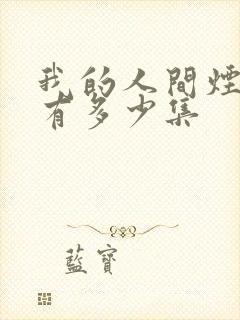 我的人間煙
有多少集
藍寶